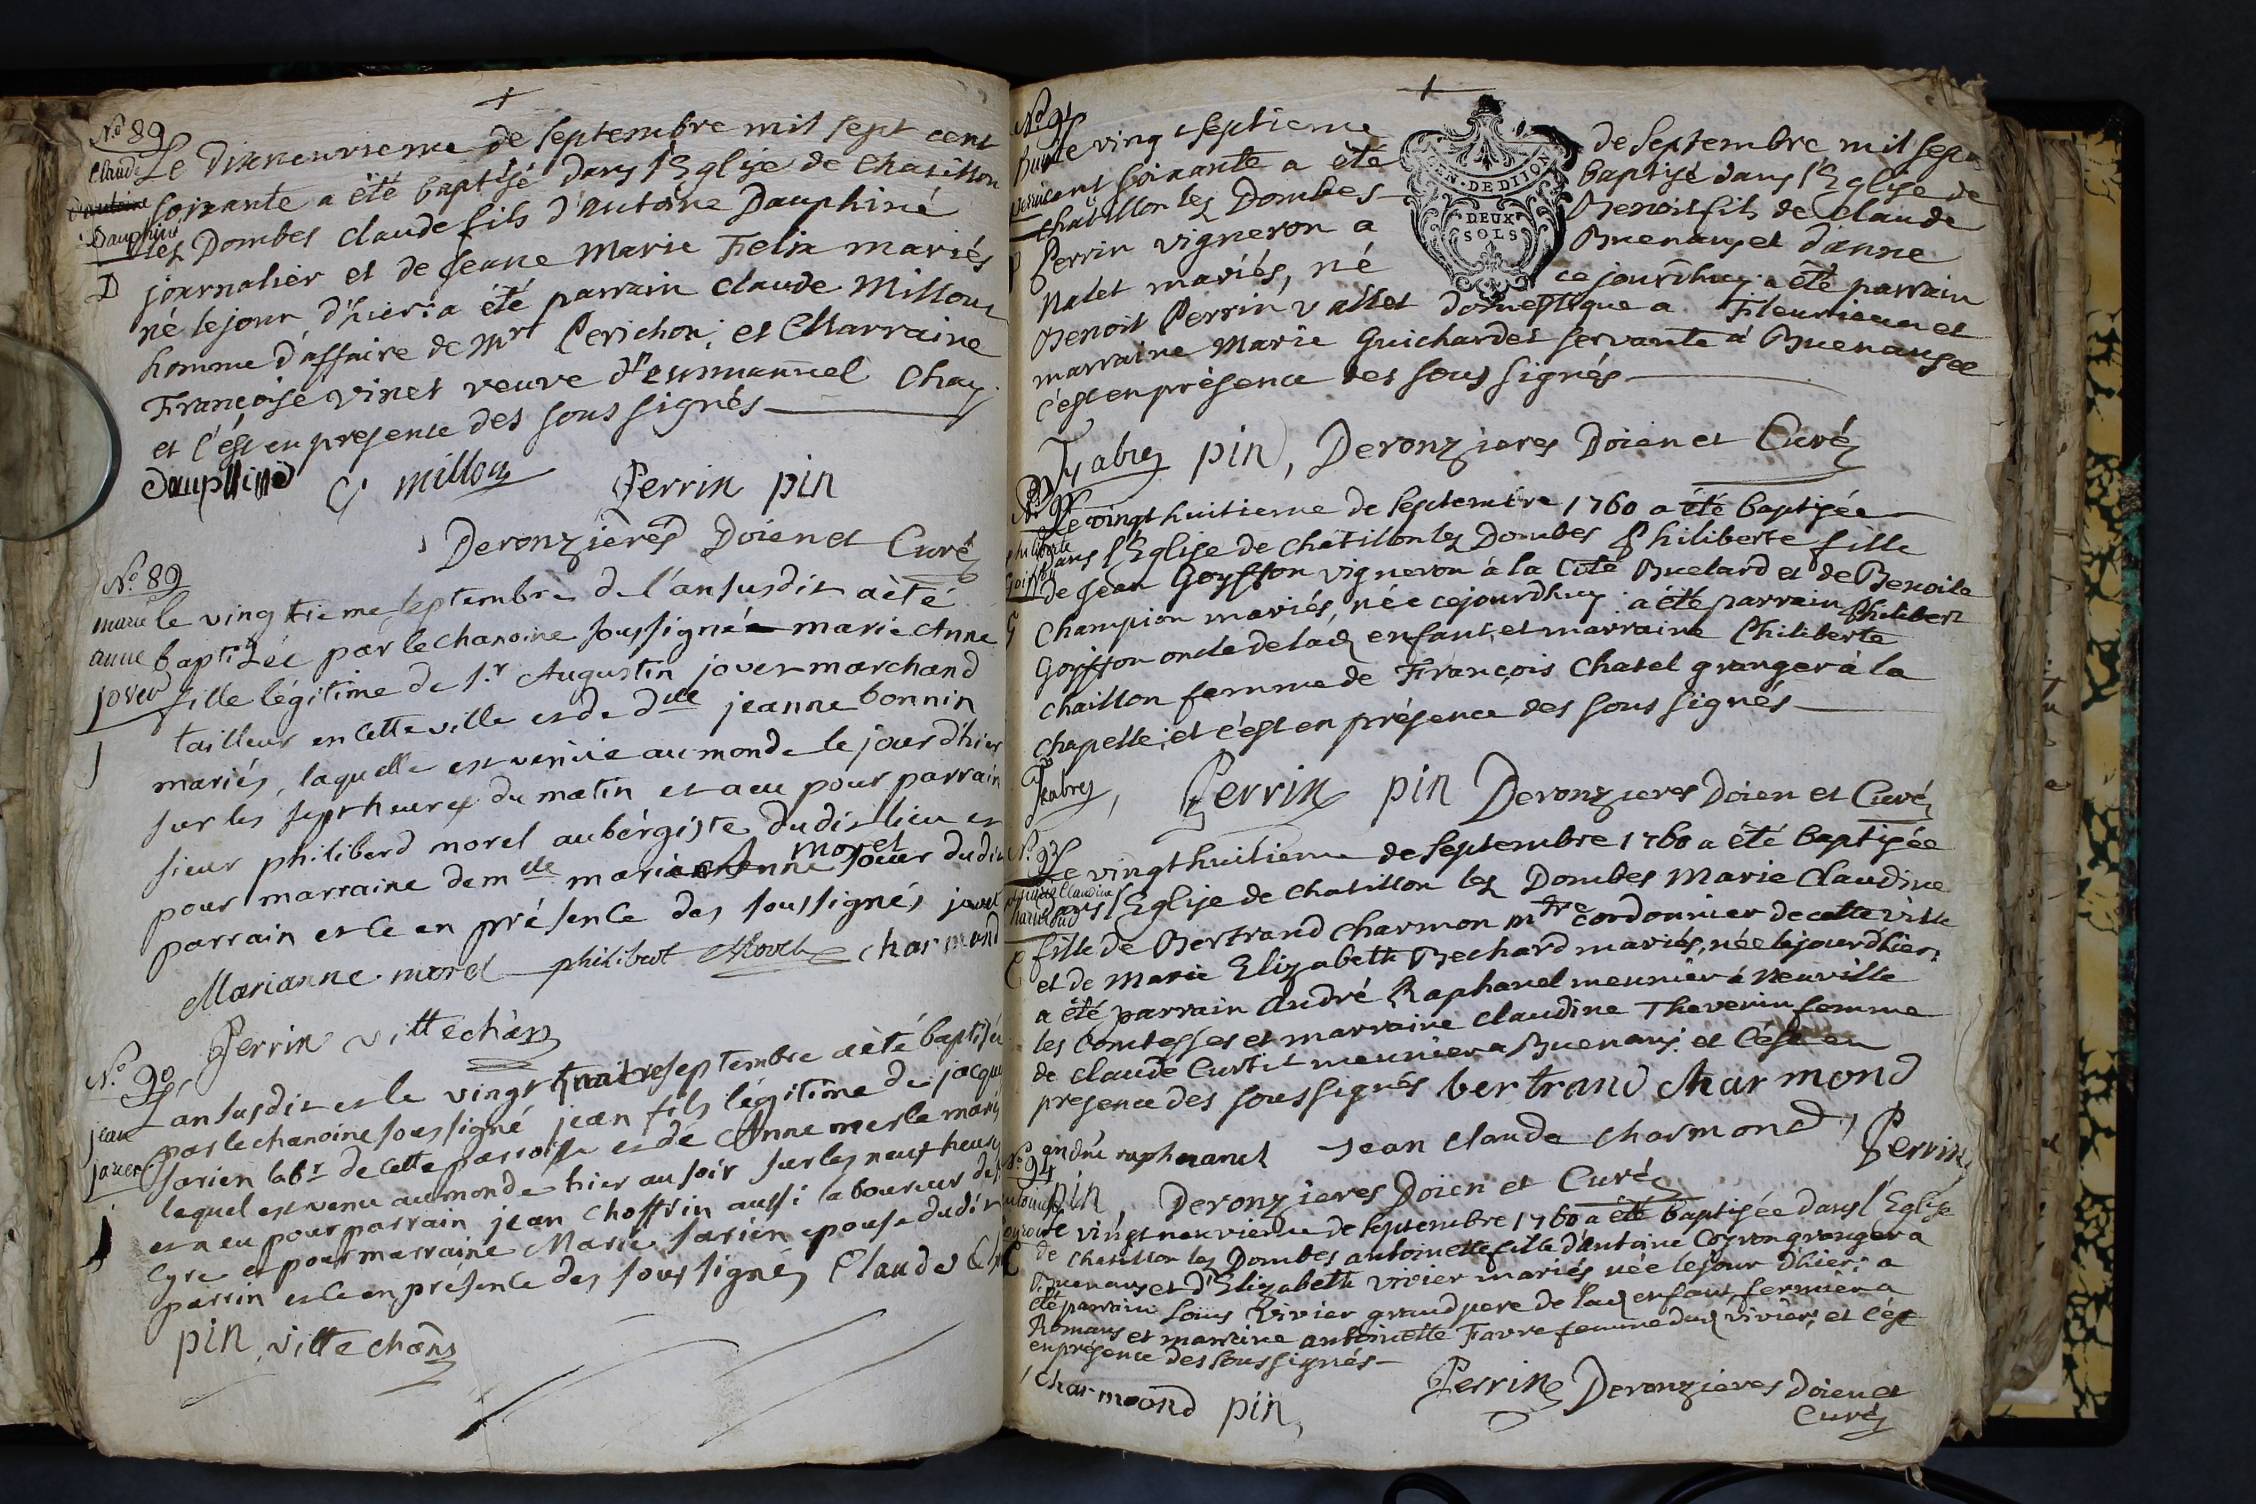 N.o 89
Claude
Dauphiné
D
Le dixneuvieme de septembre mil sept cent
soixante a été baptisé dans l'Eglise de Chatillon
les Dombes Claude fils d'antoine Dauphiné
journalier et de Jeanne Marie Felix mariés
né le jour d'hier: a été parrain Claude Milloux
homme d'affaire de Mr Perichon; et Marraine
Françoise Vinet veuve d'emmanuel Chay
et c'est en presence des soussignés
Dauphiné C. millou Perrin pin
Deronzieres Doien et Curé
N.o 89
marie
anne
jover
J
le vingtieme septembre de l'an susdit a été
baptisée par le chanoine soussigné marie Anne
fille légitime de Sr. Augustin jover marchand
tailleur en cette ville et de dlle jeanne bonnin
mariés, laquelle est venüe au monde le jour d'hier
sur les sept heures du matin et a eu pour parrain
sieur philiberd morel aubérgiste dudit lieu et
pour marraine demlle marie Anne morel soeur dudit
parrain et ce en présence des soussignés jover
Marianne morel philibert Morel charmond
Perrin villechán
N.o 90
jean
jarien
j
L'an susdit et le vingt quatre septembre a été baptisé
par le chanoine soussigné jean fils légitime de jacque
jarien labr. de cette parroisse et de Anne merle mariés
lequel est venu au monde hier au soir sur les neuf heures
et a eu pour parrain jean choffrin aussi laboureur de
Cyre et pour marraine Marie jarien epouse dudit
parrin et ce en présence des soussignés Claude
pin villechán
N.o 91
Le vingt septieme de Septembre mil sept
cent soixante a été baptisé dans l'Eglise de
Chatillon les Dombes Benoit fils de Claude
Perrin vigneron a Buenans et d'anne
Nalet mariés, né ce jourdhuy: a été parrain
Benoit Perrin vallet domestique a Fleurieux et
marraine Marie Guichardet servante a Buenans et
c'est en présence des soussignés
Fabry pin, Deronzieres Doien et Curé
philiberte
G
Le vingt huitieme de Septembre 1760 a été baptisée
dans l'Eglise de Chatillon les Dombes Philiberte fille
de Jean Goyffon vigneron à la Côte Buelard et de Benoite
Champion mariés, née ce jourdhuy: a été parrain Philibert
Goyffon oncle de lad enfant, et marraine Philiberte
Chaillon femme de François Chatel granger à la
Chapelle; et c'est en présence des soussignés
Fabry, Perrin pin Deronzieres Doien et Curé
marie Claudine
C
Le vingt huitieme de Septembre 1760 a été baptisée
dans l'Eglise de Chatillon les Dombes Marie Claudine
fille de Bertrand Charmon mtre cordonnier de cette ville
et de Marie Elizabeth Bechard mariés, née le jour d'hier:
a été parrain André Raphanel meunier à Neuville
les Comtesses et marraine Claudine Thevenin femme
de Claude Curtil meunier a Buenans: et c'est en
presence des soussignés bertrand charmond
andré raphanel Jean claude charmond, Perrin
pin, Deronzieres Doien et Curé
N.o 94
Le vingt neuvieme de Septembre 1760 a été baptisée dans l'Eglise
de Chatillon les Dombes antoinette fille d'antoine Coyron granger a
Buenans et d'Elizabeth Vivier mariés née le jour d'hier: a
été parrain Louis Vivier grand pere de lad enfant, fermier a
Romans et marraine antoinette Favre femme dud vivier; et c'est
en présence des soussignés
charmond pin, Perrin Deronzieres Doien et
Curé
GEN. DE DIJON
DEUX
SOLS